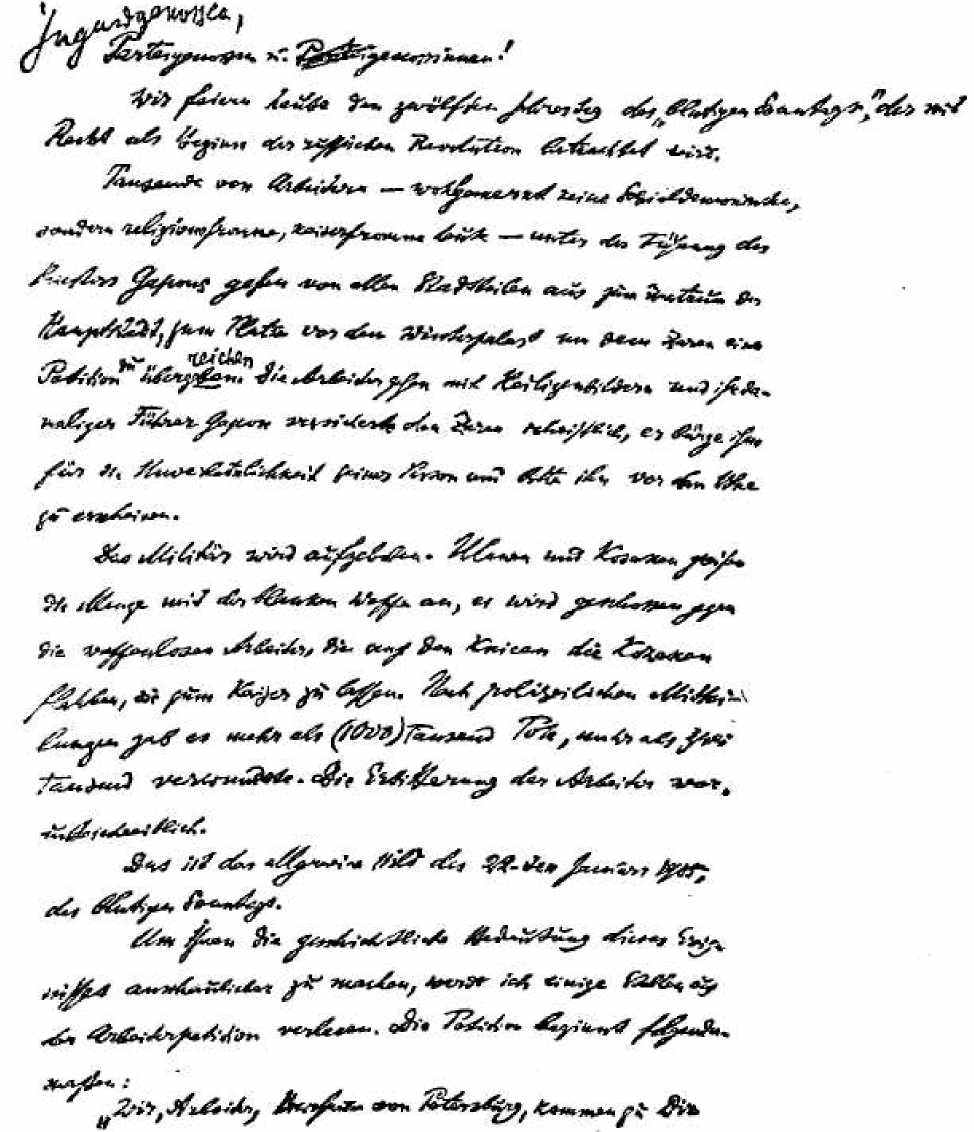 Jugendgenossen,
Parteigenossen u. Parteigenossinnen!
Wir feiern heute den zwölften Jahrestag des „blutigen Sonntags", der mit
Recht als Beginn der russischen Revolution betrachtet wird.
Tausende von Arbeitern — wohlgemerkt keine Sozialdemokraten,
sondern religionsfromme, kaiserfromme Leute — unter der Führung des
Priesters Gapons gehen von allen Stadtteilen aus zum Zentrum der
Hauptstadt, zum Platze vor dem Winterpalast um dem Zaren eine
Petition zu überreichen. Die Arbeiter gehen mit Heiligenbildern und ihr da-
maliger Führer Gapon versicherte den Zaren schriftlich, er bürge ihm
für die Unverletzlichkeit seiner Person und bitte ihn vor dem Volke
zu erscheinen.
Das Militär wird aufgeboten. Ulanen und Kosaken greifen
die Menge mit der blanken Waffe an, es wird geschossen gegen
die waffenlosen Arbeiter, die auf den Knieen die Kosaken
flehten, sie zum Kaiser zu lassen. Nach polizeilichen Mittei-
lungen gab es mehr als (1000) Tausend Tote, mehr als zwei
Tausend verwundete. Die Erbitterung der Arbeiter war
unbeschreiblich.
Das ist das allgemeine Bild des 22-ten Januars 1905,
des blutigen Sonntags.
Um Ihnen die geschichtliche Bedeutung dieses Ereig-
nisses anschaulicher zu machen, werde ich einige Stellen aus
der Arbeiterpetition verlesen. Die Petition beginnt folgender-
massen:
„Wir, Arbeiter, Bewohner von Petersburg, kommen zu Dir